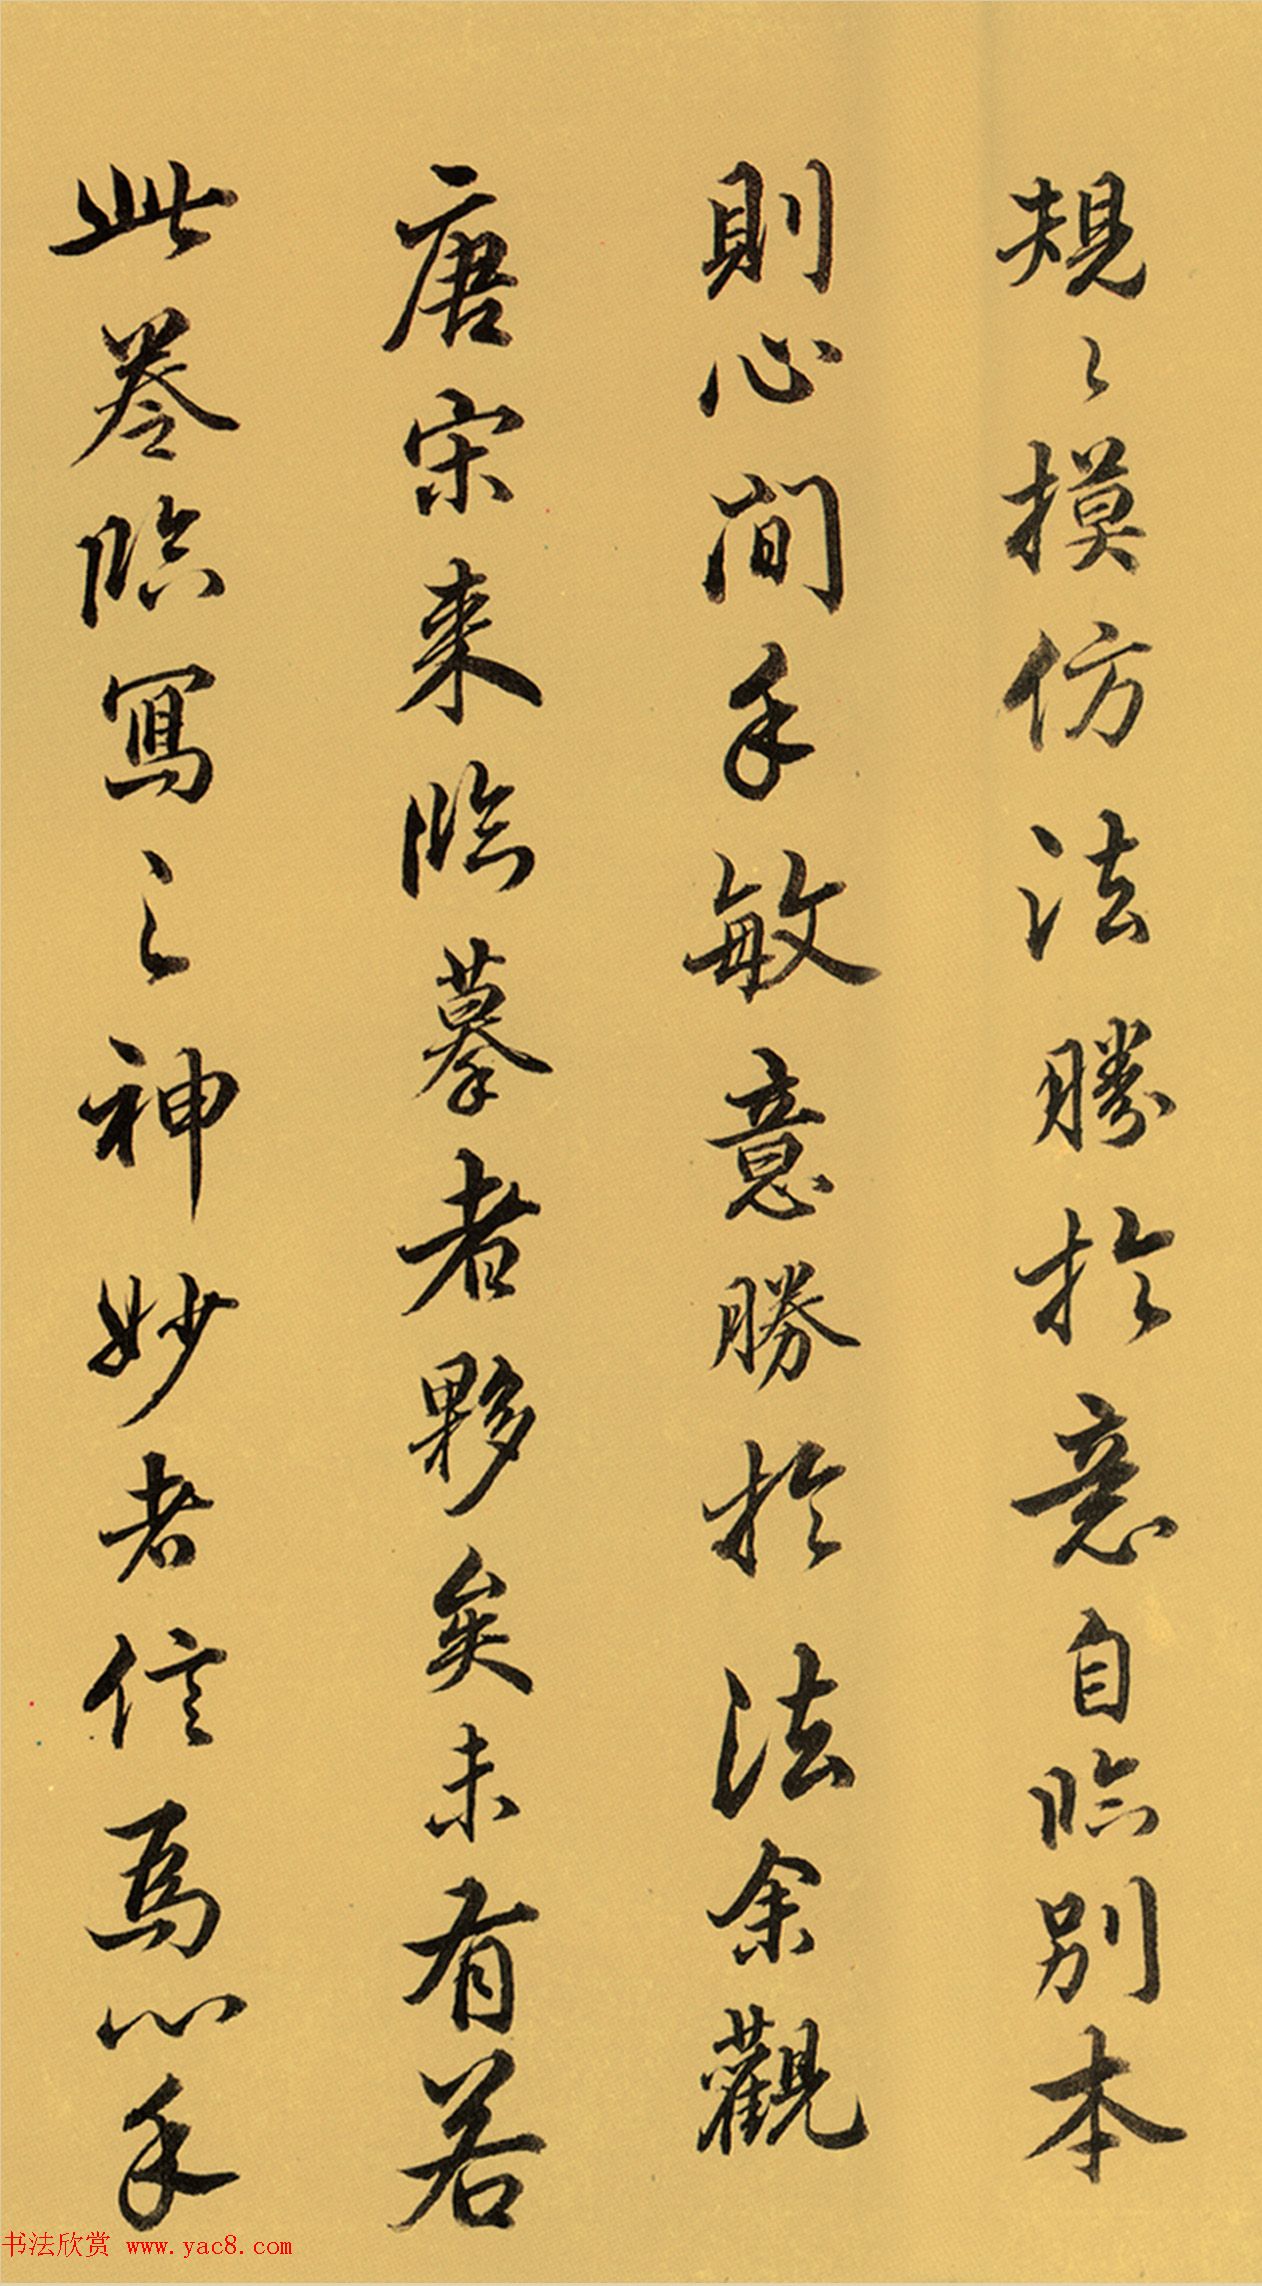 規〻摸仿法勝扵意自臨别本
則心間手敏意勝扵法余觀
唐宋来臨摹者夥矣未有若
此卷臨寫之神妙者信爲心手
书法欣赏 www.yac8.com